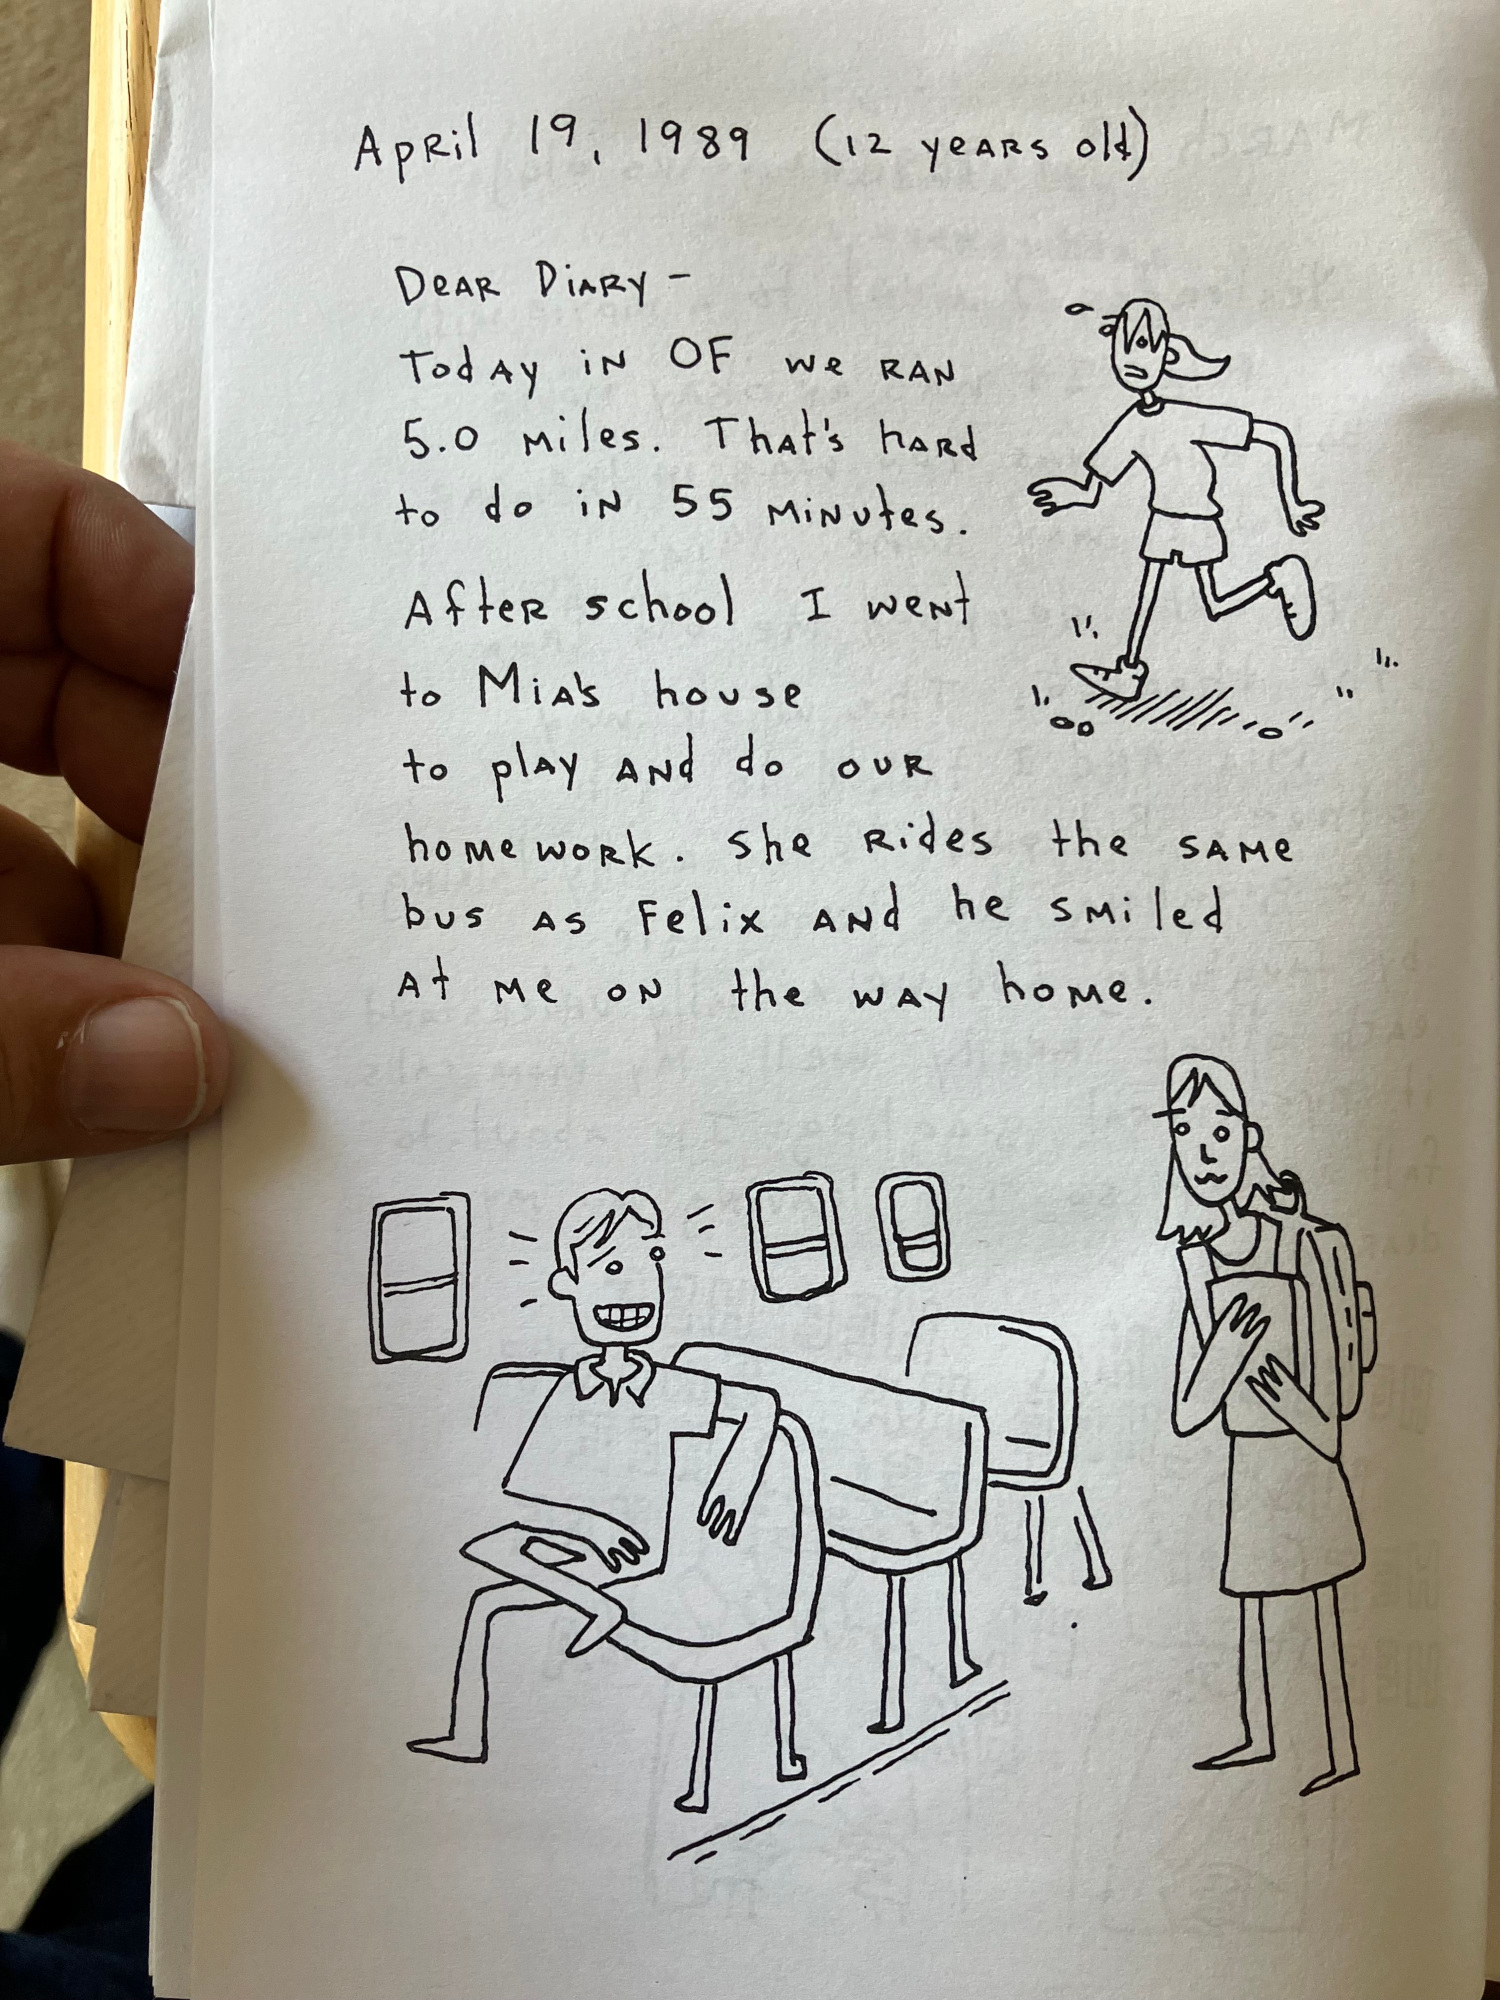 April 19, 1989 (12 years old)
Dear Diary -
Today in OF we ran
5.0 miles. That's hard
to do in 55 minutes.
After school I went
to Mia's house
to play and do our
homework. She rides the same
bus as Felix and he smiled
at me on the way home.